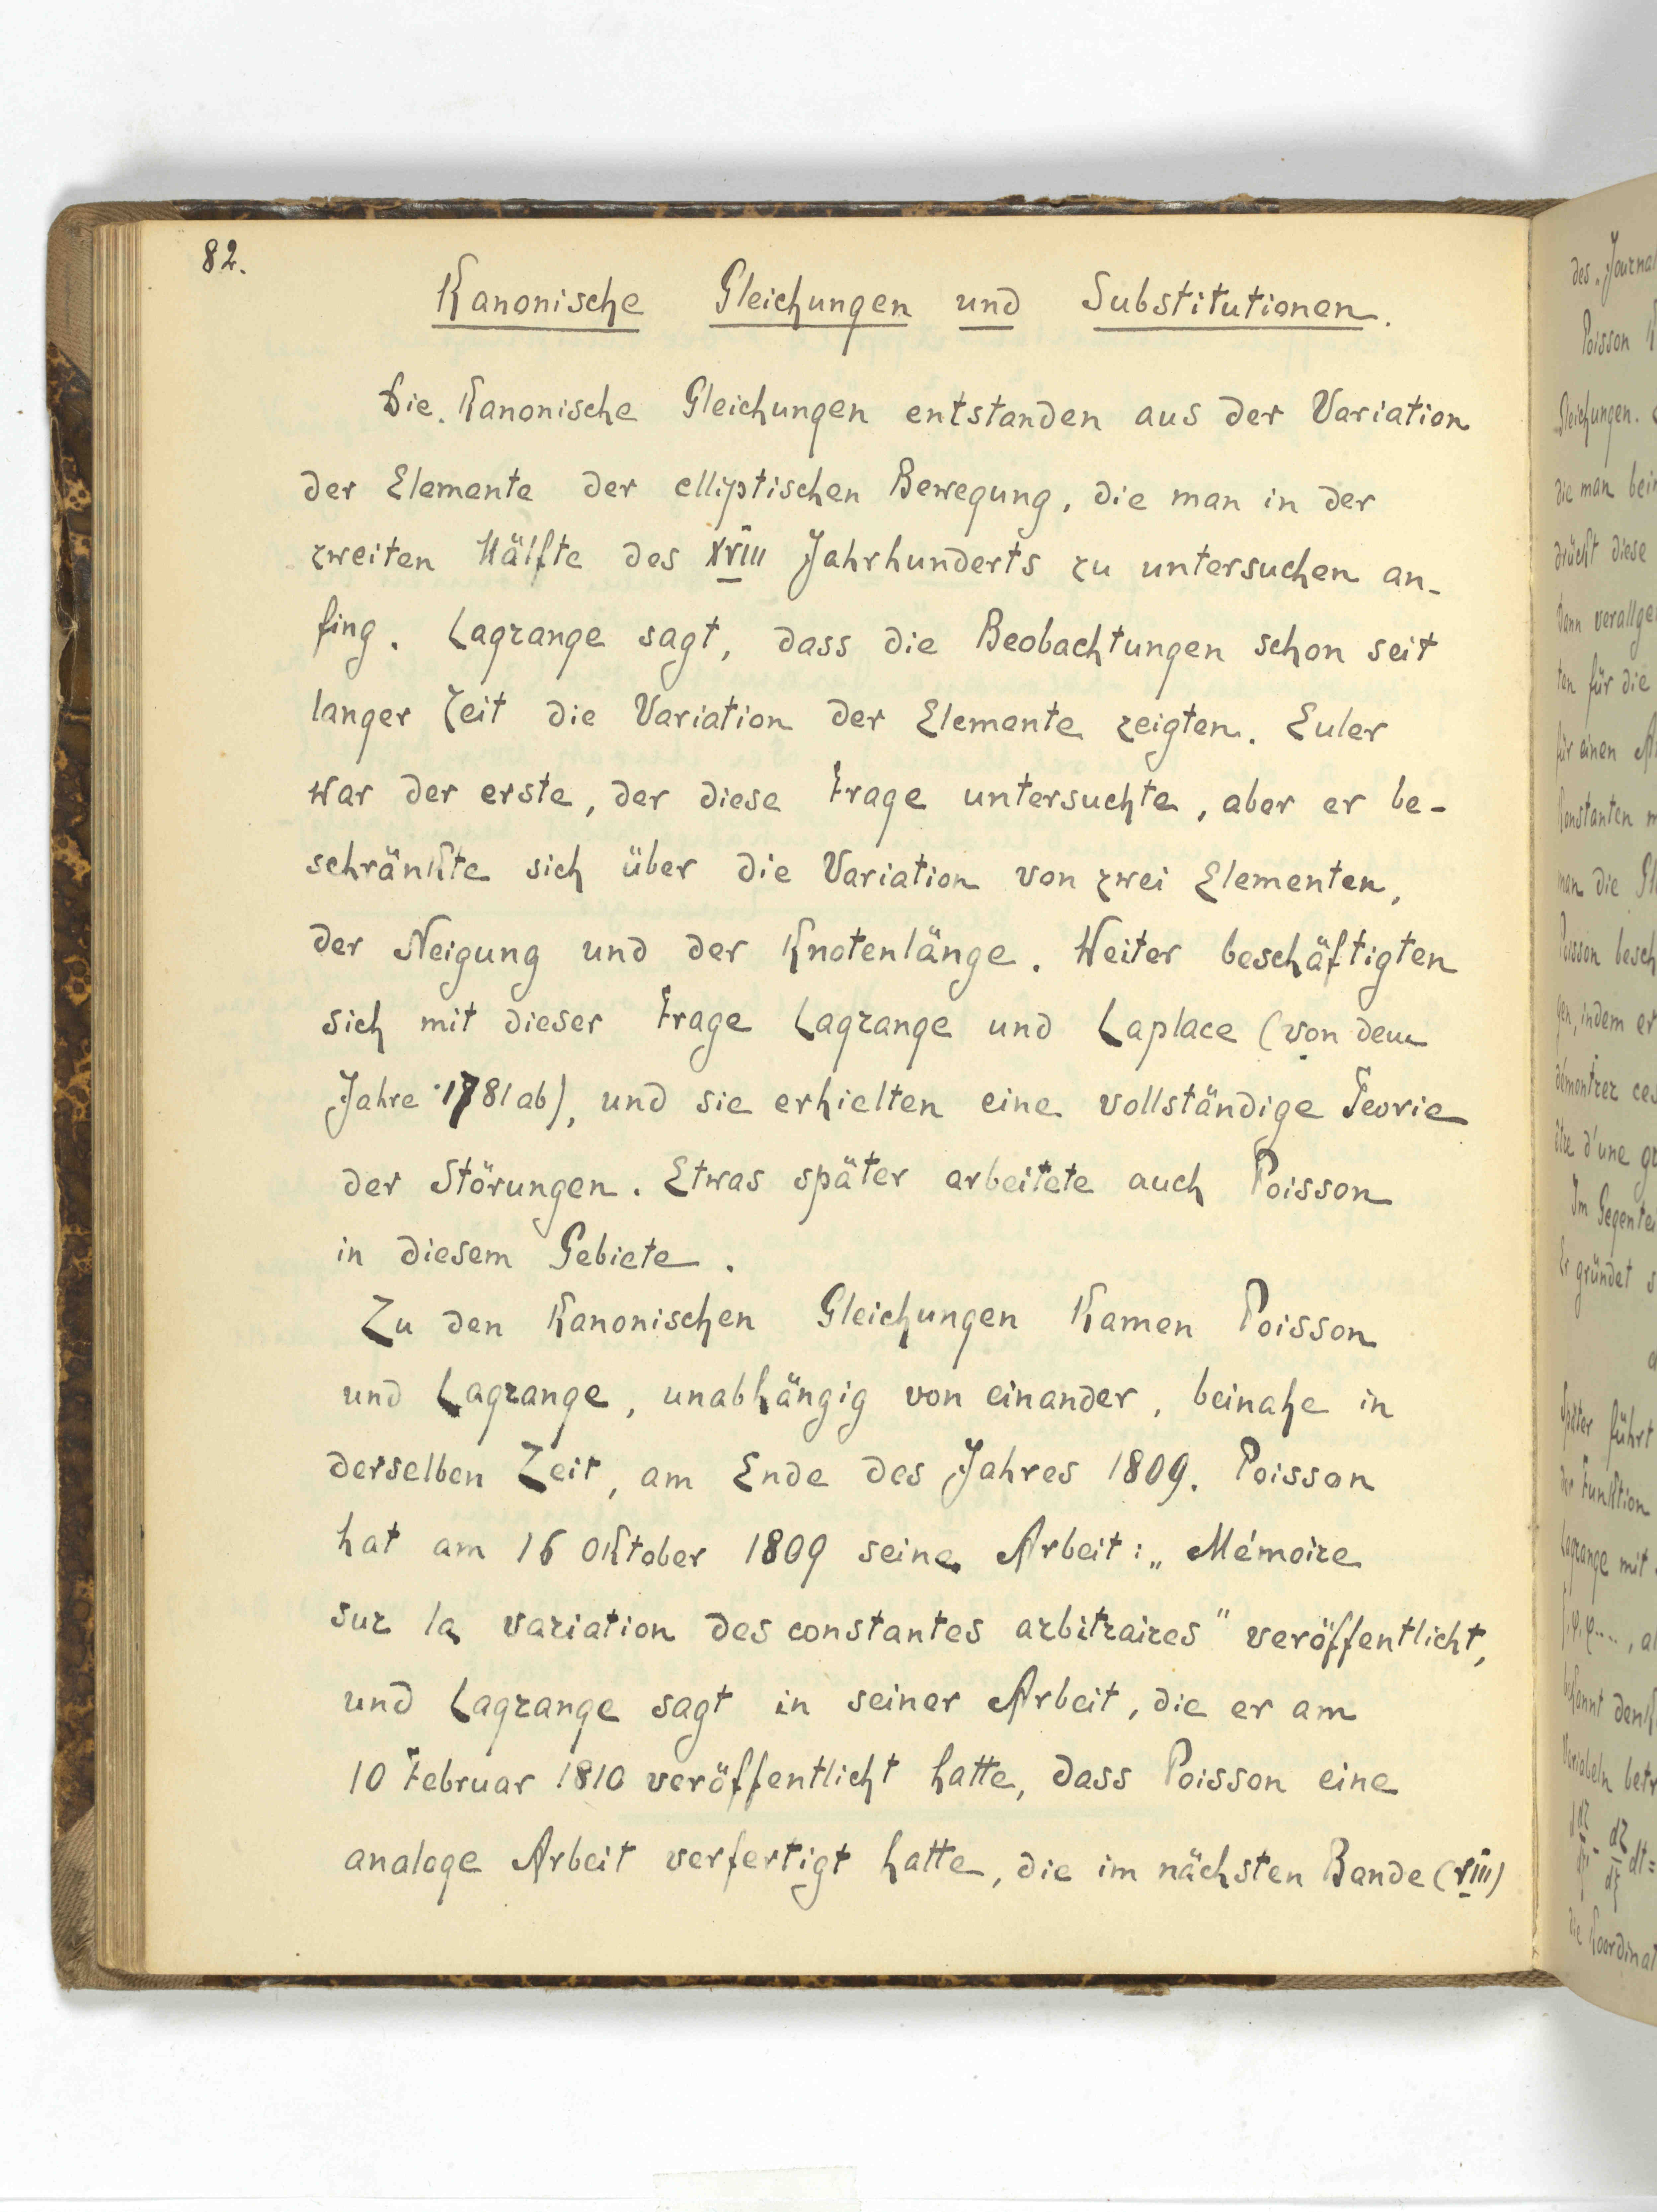 82.
Kanonische Gleichungen und Substitutionen.
Die Kanonische Gleichungen entstanden aus der Variation
der Elemente der elliptischen Bewegung, die man in der
zweiten Hälfte des XVIII Jahrhunderts zu untersuchen an-
fing. Lagrange sagt, dass die Beobachtungen schon seit
langer Zeit die Variation der Elemente zeigten. Euler
war der erste, der diese Frage untersuchte, aber er be-
schränkte sich über die Variation von zwei Elementen,
der Neigung und der Knotenlänge. Weiter beschäftigten
sich mit dieser Frage Lagrange und Laplace (von dem
Jahre 1781 ab), und sie erhielten eine vollständige Teorie
der Störungen. Etwas später arbeitete auch Poisson
in diesem Gebiete.
Zu den Kanonischen Gleichungen Kamen Poisson
und Lagrange, unabhängig von einander, beinahe in
derselben Zeit, am Ende des Jahres 1809. Poisson
hat am 16 Oktober 1809 seine Arbeit: „Mémoire
sur la variation des constantes arbitraires" veröffentlicht,
und Lagrange sagt in seiner Arbeit, die er am
10 Februar 1810 veröffentlicht hatte, dass Poisson eine
analoge Arbeit verfertigt hatte, die im nächsten Bande (VIII)
des Journal
Poisson
Gleichungen.
die man bei
drückt diese
dann verallge
ten für die
für einen
Konstanten
man die Gl
Poisson besch
gen, indem er
démontrer ces
être d'une gr
Im Gegente
Er gründet s
Später führt
der Funktion
Lagrange mit
bekannt denk
Variabeln betr
die Koordinat